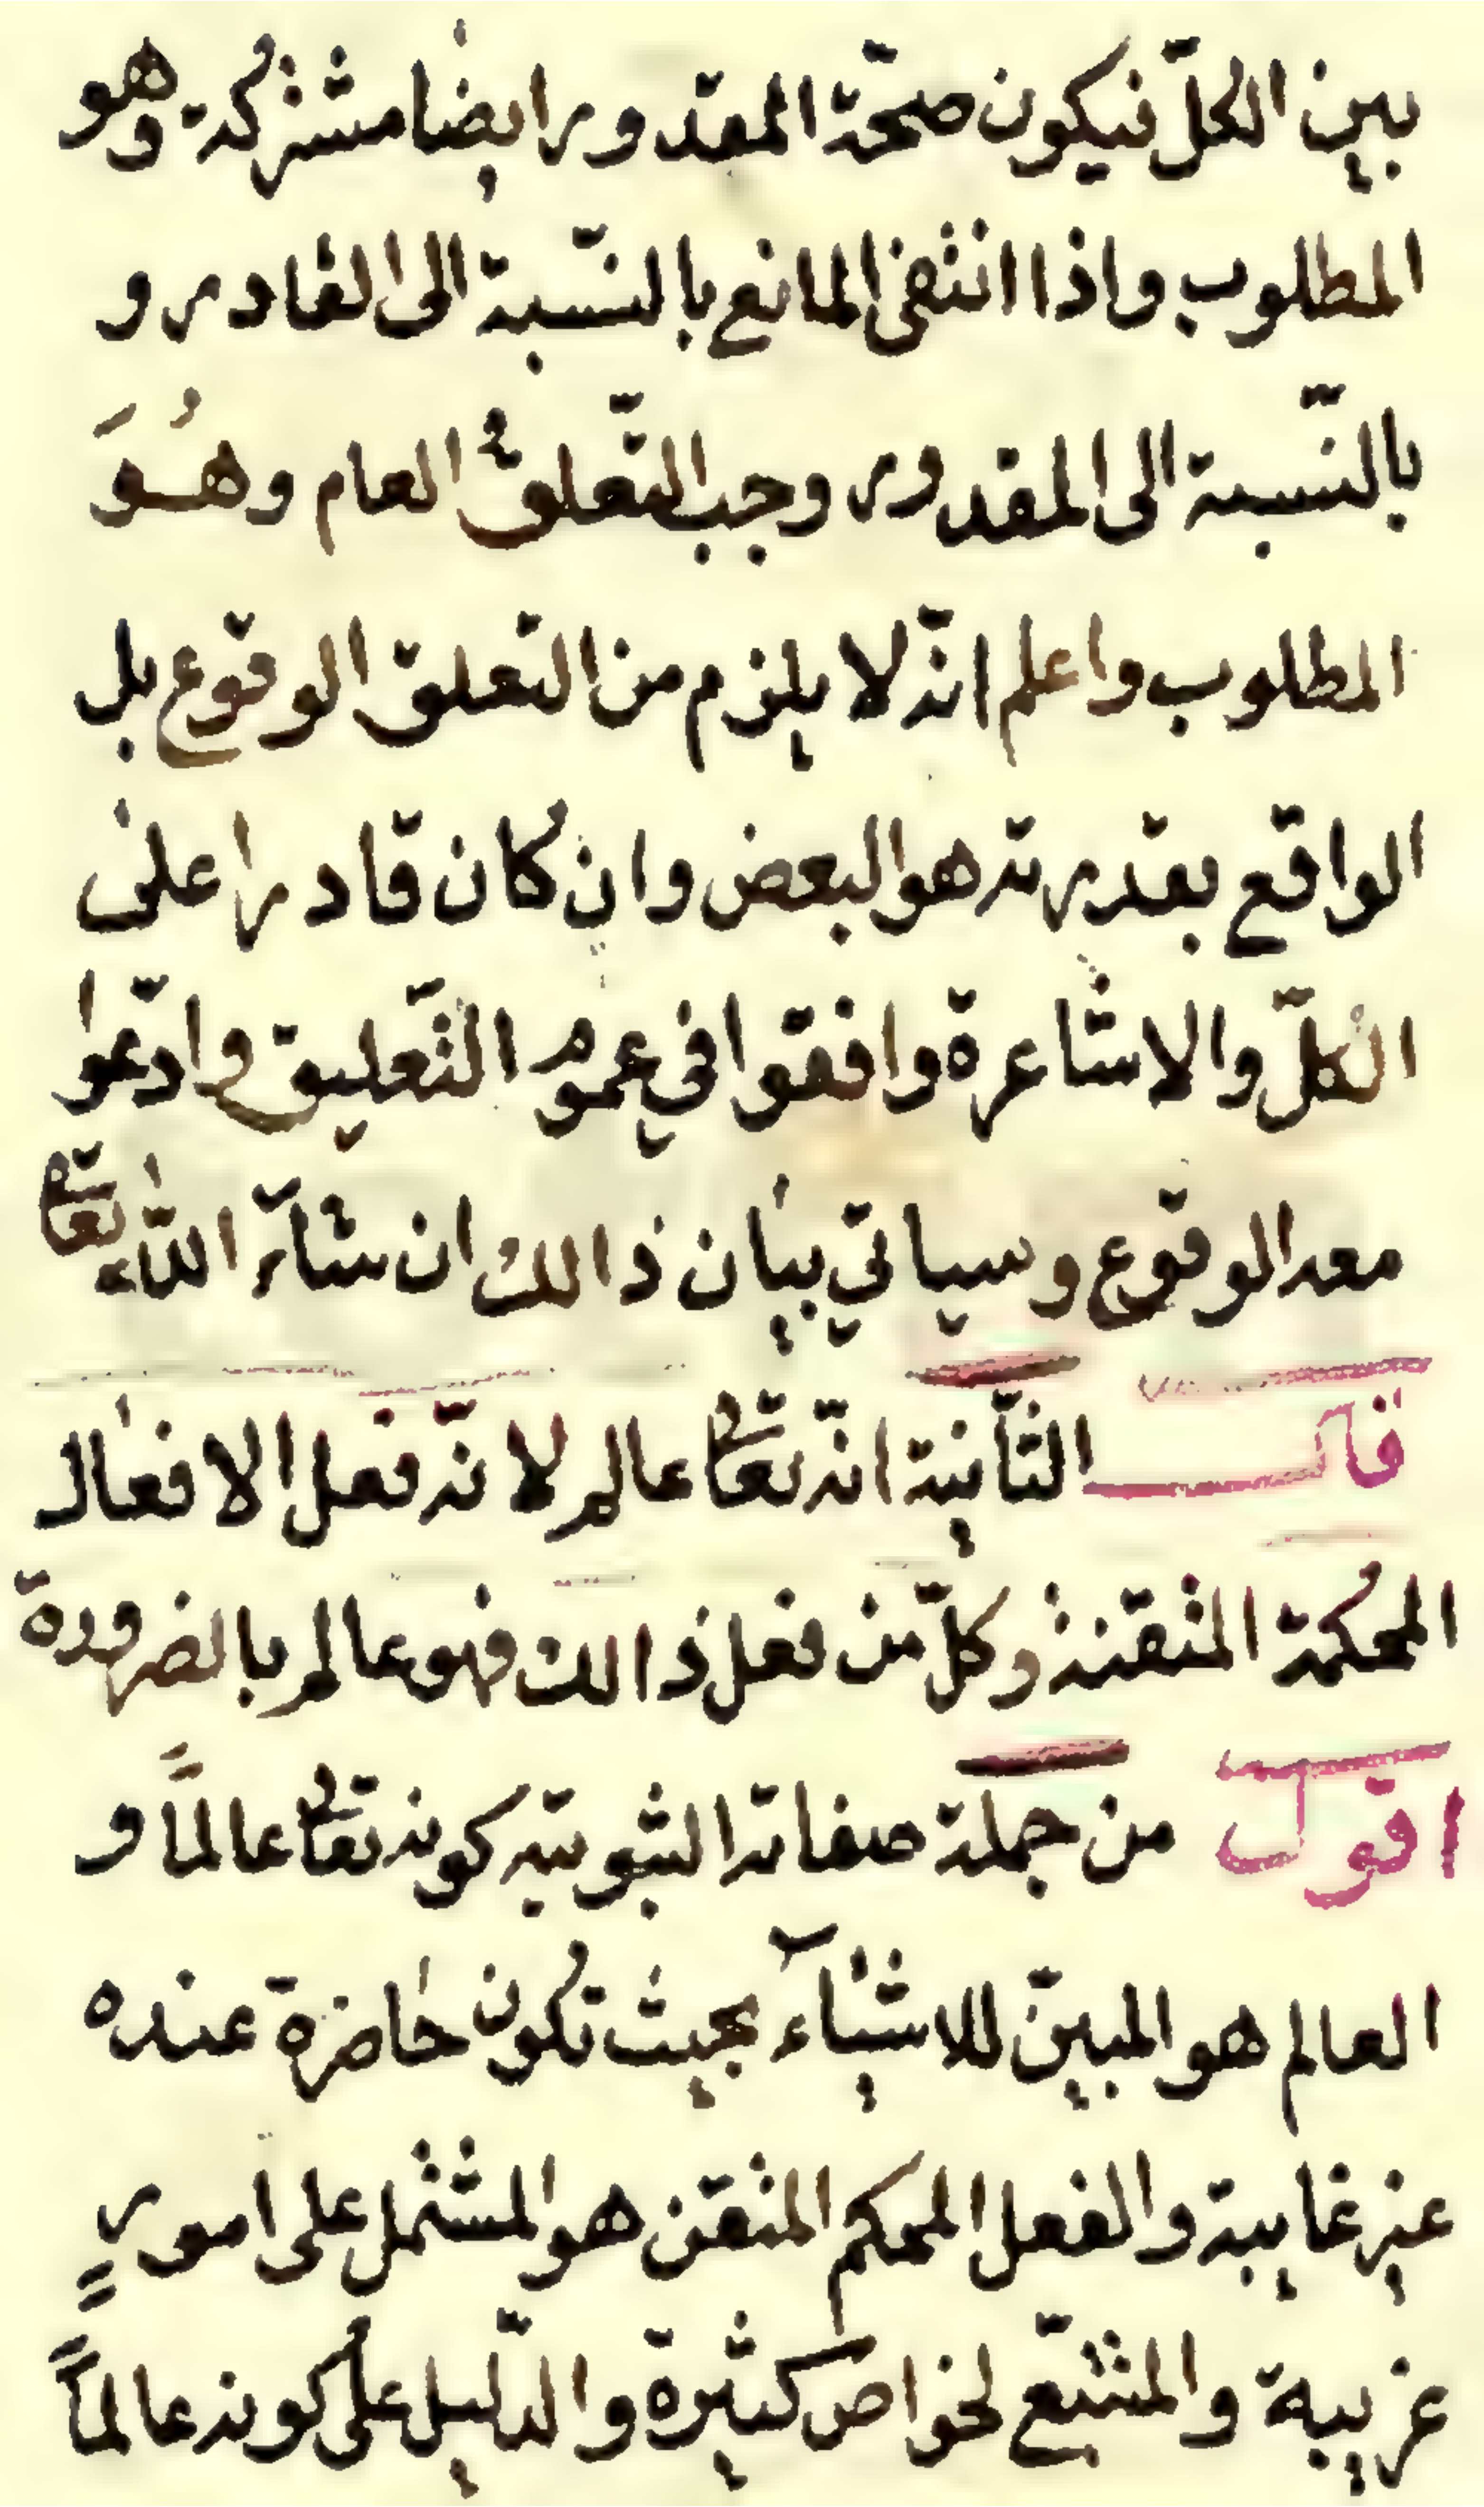 بين الكلّ فيكون صحّة المقدور ايضا مشتركة وهو
المطلوب واذا انتفى المانع بالنّسبة الى القادر و
بالنّسبة الى المقدور وجب التّعلقُ العام وهُوَ
المطلوب واعلم انّه لا يلزم من التعلق الوقوع بل
الواقع بقدرته هو البعض وان كان قادرا على
الكلّ والاشاعرة وافقوا في عموم التّعليق وادّعوا
معه الوقوع وسياتي بيان ذالك ان شآء اللّه تعالى
قال الثّانية انّه تعالى عالم لانّه فعل الافعال
المحكمة المتقنة وكلّ من فعل ذالك فهو عالم بالضرورة
اقول من جملة صفاته الثبوتيه كونه تعالى عالماً و
العالم هو المبيّن للاشيآء بحيث تكون حاضرة عنده
غير غايبة والفعل المحكم المتقن هو المشتمل على امورٍ
غريبة والمتتبّع لخواص كثيرة والدّليل على كونه عالماً